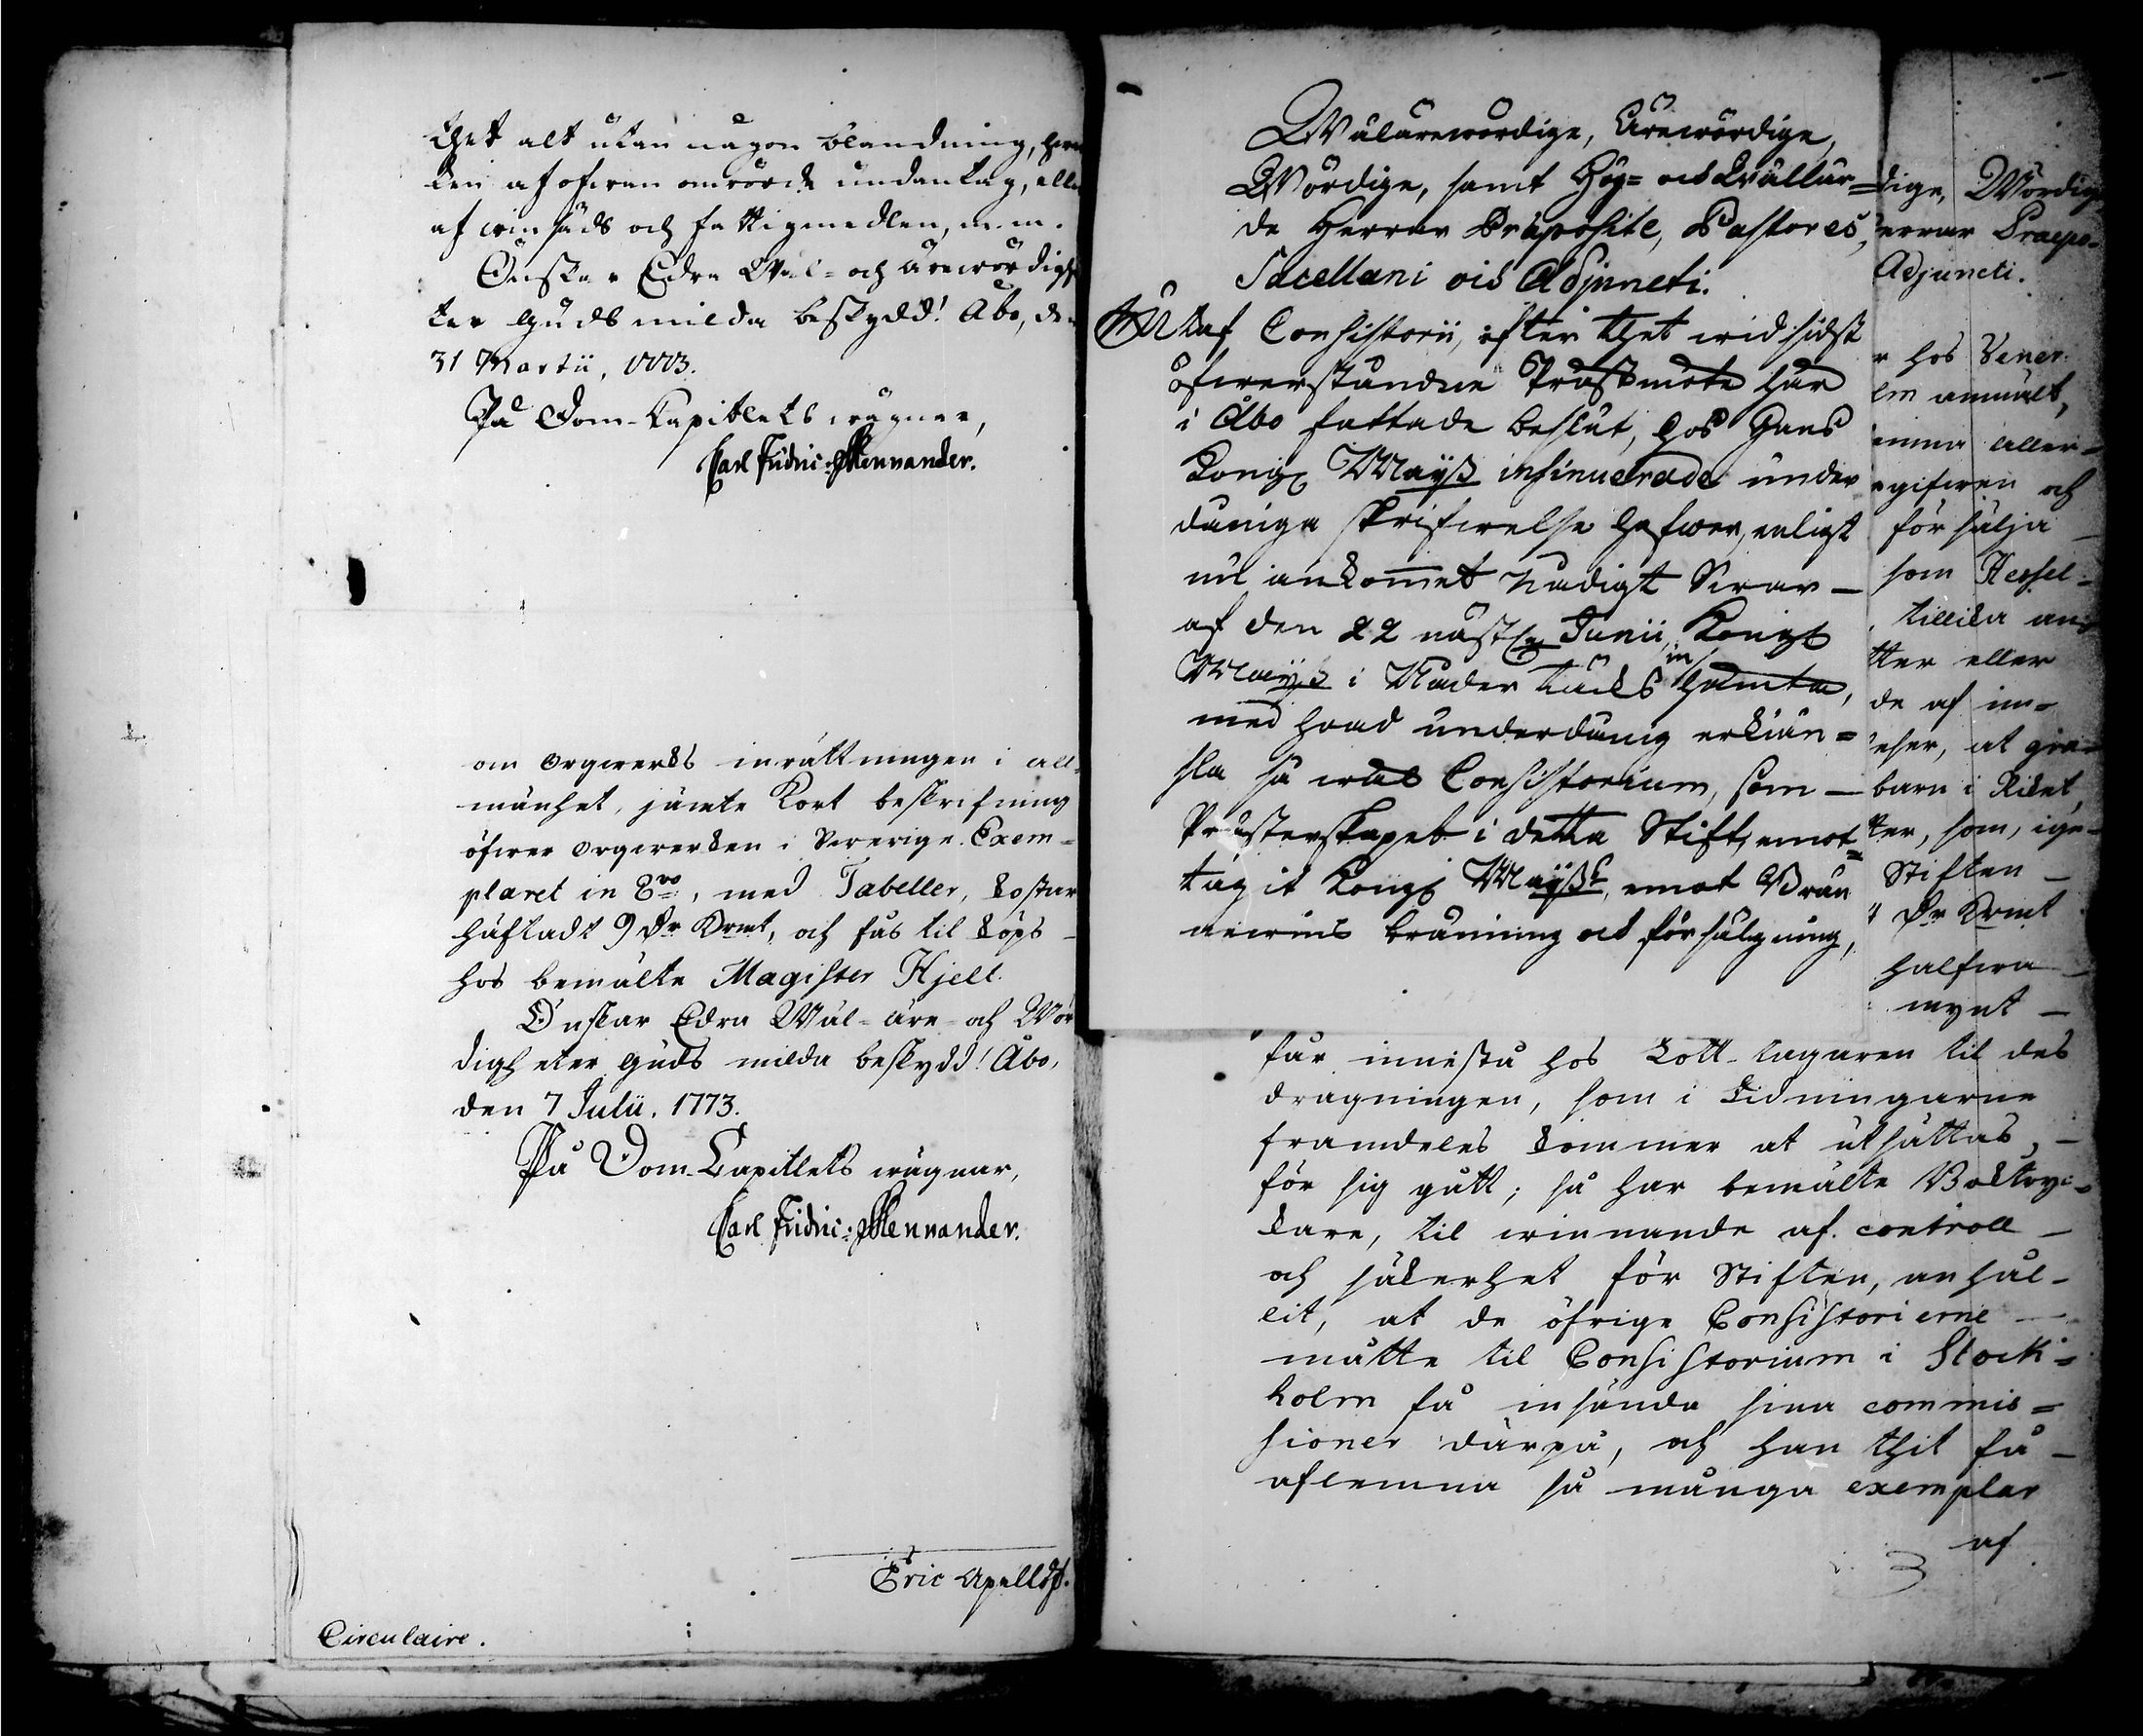 thet alt utan någon blandning, hwar
ken af ofwan omrörde undantag, eller
af winsäds och fattigmedlen, m. m.
Önskar Edra Wäl- och ärewördighe
ter Guds milda beskydd! Åbo, den
31 Martii, 1773.
På Dom-Kapitlets wägnar,
Carl Fridric: Mennander.
om Orgwerks inrättningen i all-
mänhet, jämte Kort beskrifning
öfwer Orgwerken i Swerige. Exem-
plaret in 8vo, med Tabeller, kostar
häftadt 9 Dr Kmt, och fås til köps
hos bemälte Magister Hjell.
Önskar Edra Wäl- äre- och Wör
digheter Guds milda beskydd! Åbo,
den 7 Julii. 1773.
På Dom-Capitlets wägnar,
Carl Fridric: Mennander.
Eric
Circulaire.
Wälärewördige, Ärewördige,
Wördige, samt Hög- och Wällär-
de Herrar Præpositi, Pastores,
Sacellani och Adjuncti.
Utaf Consistorii, efter thet wid sidst
öfwerståndne Prästmöte här
i Åbo fattade beslut, hos Hans
Kongl. Mayst insinuerade under
dåniga skrifwelse hafwer, enligt
nu ankommet Nådigt Swar
af den 22 nästl. Junii, Kongl.
Mayst i Nåder täcks inhämta,
med hwad underdånig erkiän-
sla så wäl Consistorium, som
Prästerskapet i detta Stift, emot-
tagit Kongl. Maysts, emot Brän
newins bränning och försälgning,
dige, Wördige
Herrar Praepo-
Adjuncti.
r hos Vener.
len anmält,
ämna aller-
gifwen och
försälja
som Hessel-
tillika an-
tter eller
de af in-
eser, at gra-
barn i Riket,
ter, som, ige-
Stiften
4 Dr Kmt
halfwa
mynt
får innestå hos Lott-tagaren til des
dragningen, som i Tidningarne
framdeles kommer at utsättas,
för sig gått; så har bemälte Boktryc-
kare, til winnande af controll
och säkerhet för Stiften, anhål-
lit, at de öfrige Consistorierne
måtte til Consistorium i Stock-
holm få insända sina commis-
sioner därpå, och han thit få
aflemna så många exemplar
af
3